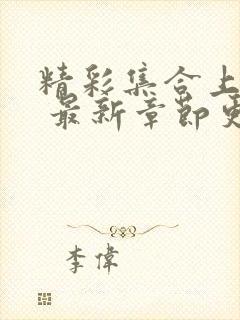 精彩集合上
最新章節
李偉